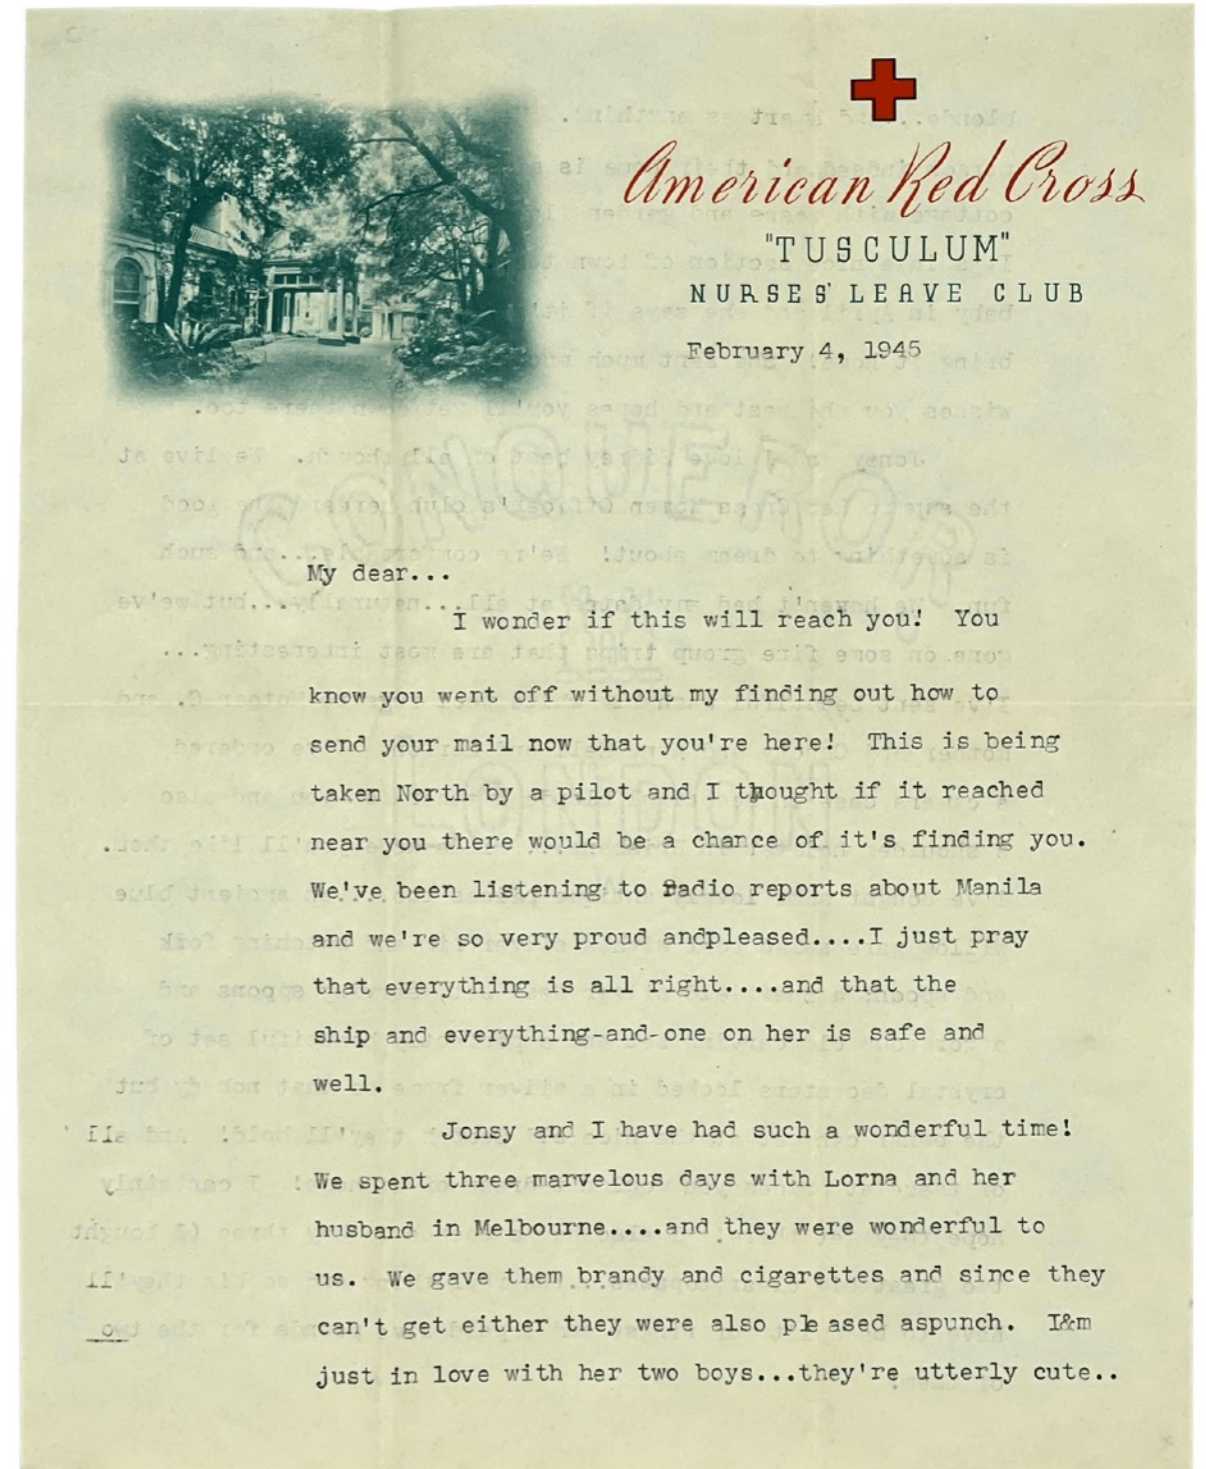 American Red Cross
"TUSCULUM"
NURSES' LEAVE CLUB
February 4, 1945
My dear...
I wonder if this will reach you!  You
know you went off without my finding out how to
send your mail now that you're here!  This is being
taken North by a pilot and I thought if it reached
near you there would be a chance of it's finding you.
We've been listening to Radio reports about Manila
and we're so very proud andpleased....I just pray
that everything is all right....and that the
ship and everything-and-one on her is safe and
well.
Jonsy and I have had such a wonderful time!
We spent three marvelous days with Lorna and her
husband in Melbourne....and they were wonderful to
us.  We gave them brandy and cigarettes and since they
can't get either they were also pleased aspunch.  I&m
just in love with her two boys...they're utterly cute..